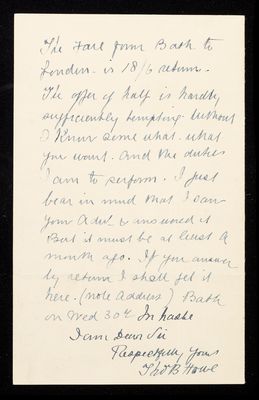 The Fare from Bath to
London is 18/6 return.
The offer of half is hardly
sufficiently tempting without
I know some what what
you want. And the duties
I am to perform. I just
bear in mind that I saw
your Advt & answered it
But it must be at least a
month ago. If you answer
by return I shall get it
here. (note address) Bath
on Wed 30th In haste
I am Dear Sir
Respectfully Yours
Thos B Howe